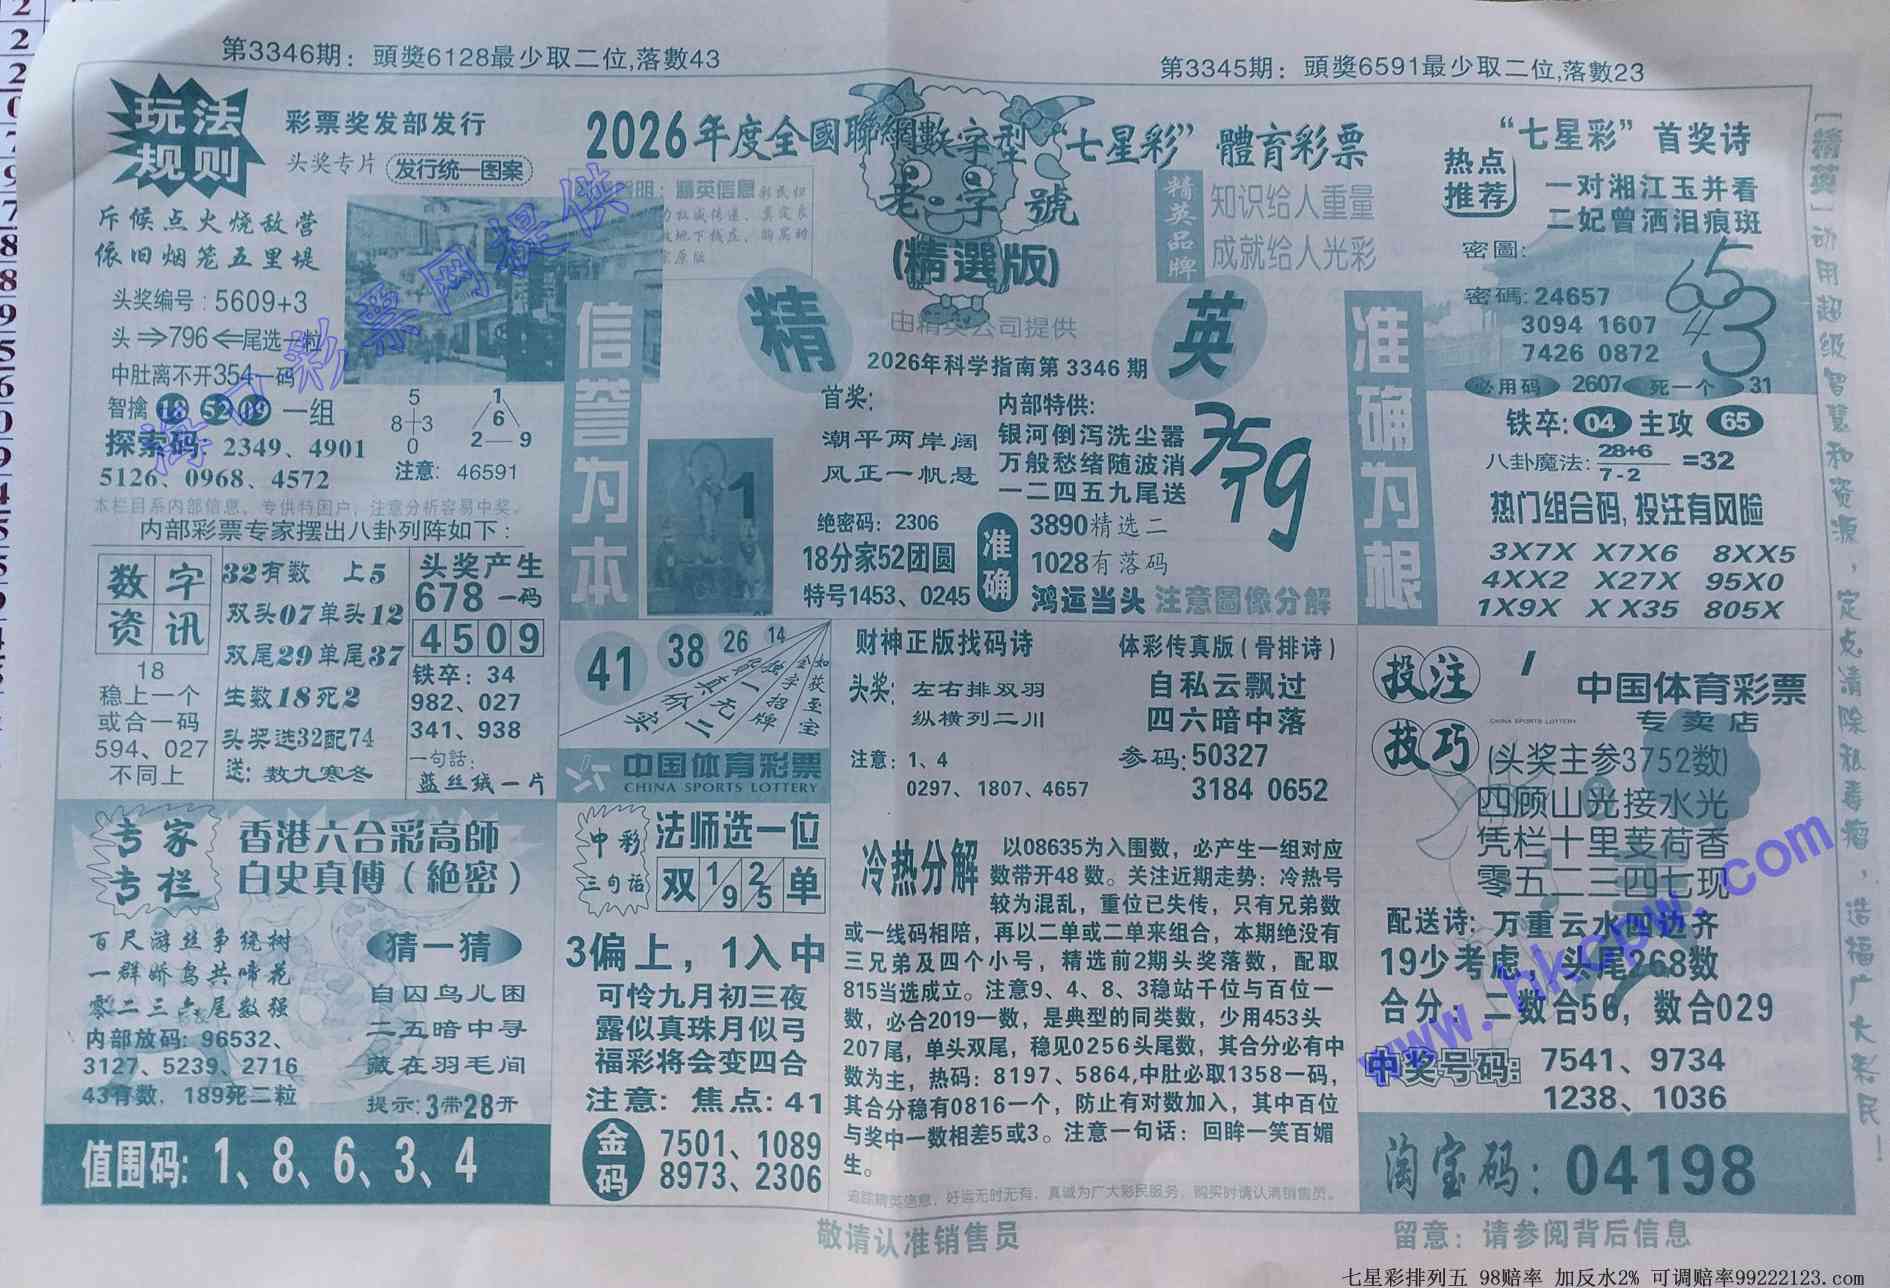 第3346期：頭獎6128最少取二位,落數43
第3345期：頭獎6591最少取二位,落數23
玩法
规则
彩票奖发部发行
头奖专片 发行统一图案
斥候点火烧敌营
依旧烟笼五里堤
头奖编号：5609+3
头⇒796⇐尾选一粒
中肚离不开354一码
智擒 18 52 09 一组
探索码：2349、4901
5126、0968、4572
5
8+3
0
1
6
2—9
注意：46591
本栏目系内部信息，专供特困户，注意分析容易中奖。
内部彩票专家摆出八卦列阵如下：
数字
资讯
18
稳上一个
或合一码
594、027
不同上
32有数 上5
双头07单头12
双尾29单尾37
生数18死2
头奖选32配74
送：数九寒冬
头奖产生
678一码
4509
铁卒：34
982、027
341、938
一句話：
蓝丝绒一片
专家
专栏
香港六合彩高師
白史真傅（絶密）
百尺游丝争绕树
一群娇鸟共啼花
零二三六尾数强
内部放码：96532、
3127、5239、2716
43有数，189死二粒
猜一猜
自囚鸟儿困
二五暗中寻
藏在羽毛间
提示：3带28开
值围码：1、8、6、3、4
2026年度全國聯網數字型“七星彩”體育彩票
老字號
(精選版)
由精英公司提供
精英品牌
知识给人重量
成就给人光彩
信誉为本
精
英
准确为根
2026年科学指南第3346期
首奖：
潮平两岸阔
风正一帆悬
内部特供：
银河倒泻洗尘器
万般愁绪随波消
一二四五九尾送
绝密码：2306
18分家52团圆
特号1453、0245
准确
3890精选二
1028有落码
鸿运当头 注意圖像分解
1
41 38 26 14
如获至宝
金字招牌
独一无二
货真价实
中国体育彩票
CHINA SPORTS LOTTERY
财神正版找码诗
头奖：左右排双羽
纵横列二川
注意：1、4
0297、1807、4657
体彩传真版（骨排诗）
自私云飘过
四六暗中落
参码：50327
3184 0652
中彩
三句话
法师选一位
双 1/9 2/5 单
3偏上，1入中
可怜九月初三夜
露似真珠月似弓
福彩将会变四合
注意：焦点：41
金码
7501、1089
8973、2306
冷热分解
以08635为入围数，必产生一组对应
数带开48数。关注近期走势：冷热号
较为混乱，重位已失传，只有兄弟数
或一线码相陪，再以二单或二单来组合，本期绝没有
三兄弟及四个小号，精选前2期头奖落数，配取
815当选成立。注意9、4、8、3稳站千位与百位一
数，必合2019一数，是典型的同类数，少用453头
207尾，单头双尾，稳见0256头尾数，其合分必有中
数为主，热码：8197、5864,中肚必取1358一码，
其合分稳有0816一个，防止有对数加入，其中百位
与奖中一数相差5或3。注意一句话：回眸一笑百媚
生。
追踪精英信息，好运无时无有，真诚为广大彩民服务，购买时请认清销售员。
“七星彩”首奖诗
热点
推荐
一对湘江玉并看
二妃曾洒泪痕斑
密圖：
密碼：24657
3094 1607
7426 0872
必用码 2607 死一个 31
铁卒：04 主攻 65
八卦魔法：28+6
7-2
=32
热门组合码,投注有风险
3X7X X7X6 8XX5
4XX2 X27X 95X0
1X9X XX35 805X
投注
技巧
中国体育彩票
CHINA SPORTS LOTTERY
专卖店
(头奖主参3752数)
四顾山光接水光
凭栏十里芰荷香
零五二三四七现
配送诗：万重云水四边齐
19少考虑，头尾268数
合分：二数合56，数合029
中奖号码：7541、9734
1238、1036
淘宝码：04198
敬请认准销售员
留意：请参阅背后信息
[精英]动用超级智慧和资源，定点清除私毒瘤，造福广大彩民！
653
4
3
3759
海口彩票网提供
www.hkcpw.com
七星彩排列五 98赔率 加反水2% 可调赔率99222123.com